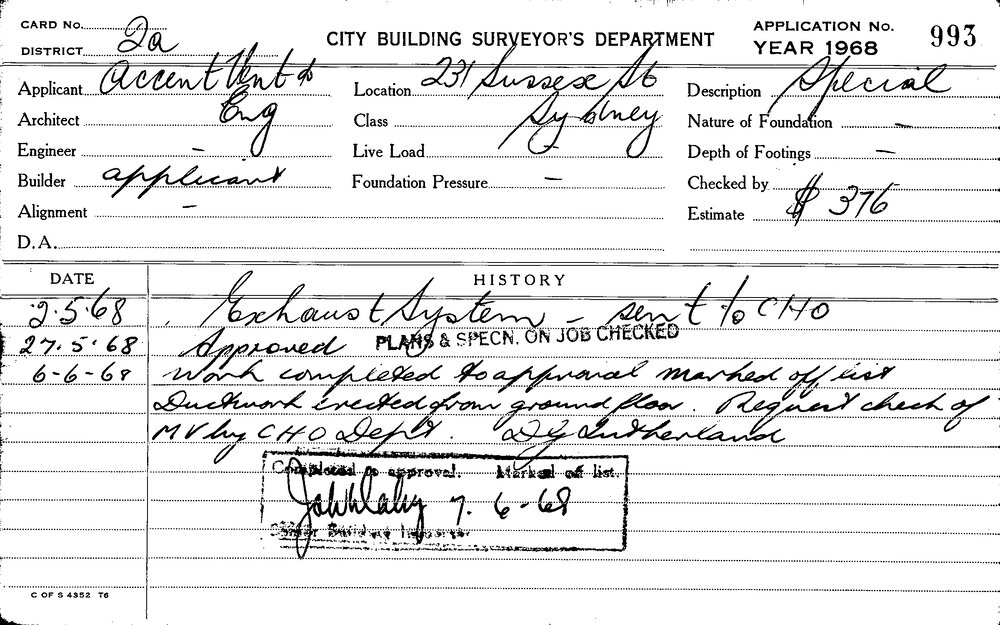 CARD No.
DISTRICT 2a
CITY BUILDING SURVEYOR'S DEPARTMENT
APPLICATION No. 993
YEAR 1968
Applicant Accent Vent &
Eng
Location 231 Sussex St
Sydney
Description Special
Architect
Class
Nature of Foundation —
Engineer —
Live Load —
Depth of Footings —
Builder applicant
Foundation Pressure —
Checked by
Alignment —
Estimate $ 376
D.A.
DATE HISTORY
2.5.68 Exhaust System – sent to CHO
27.5.68 Approved PLANS & SPECN. ON JOB CHECKED
6-6-68 Work completed to approval marked off list
Ductwork erected from ground floor. Request check of
MV by CHO Dept. Sutherland
Completed to approval. Marked off list.
7. 6-68
Senior Building Inspector
C OF S 4352 T6